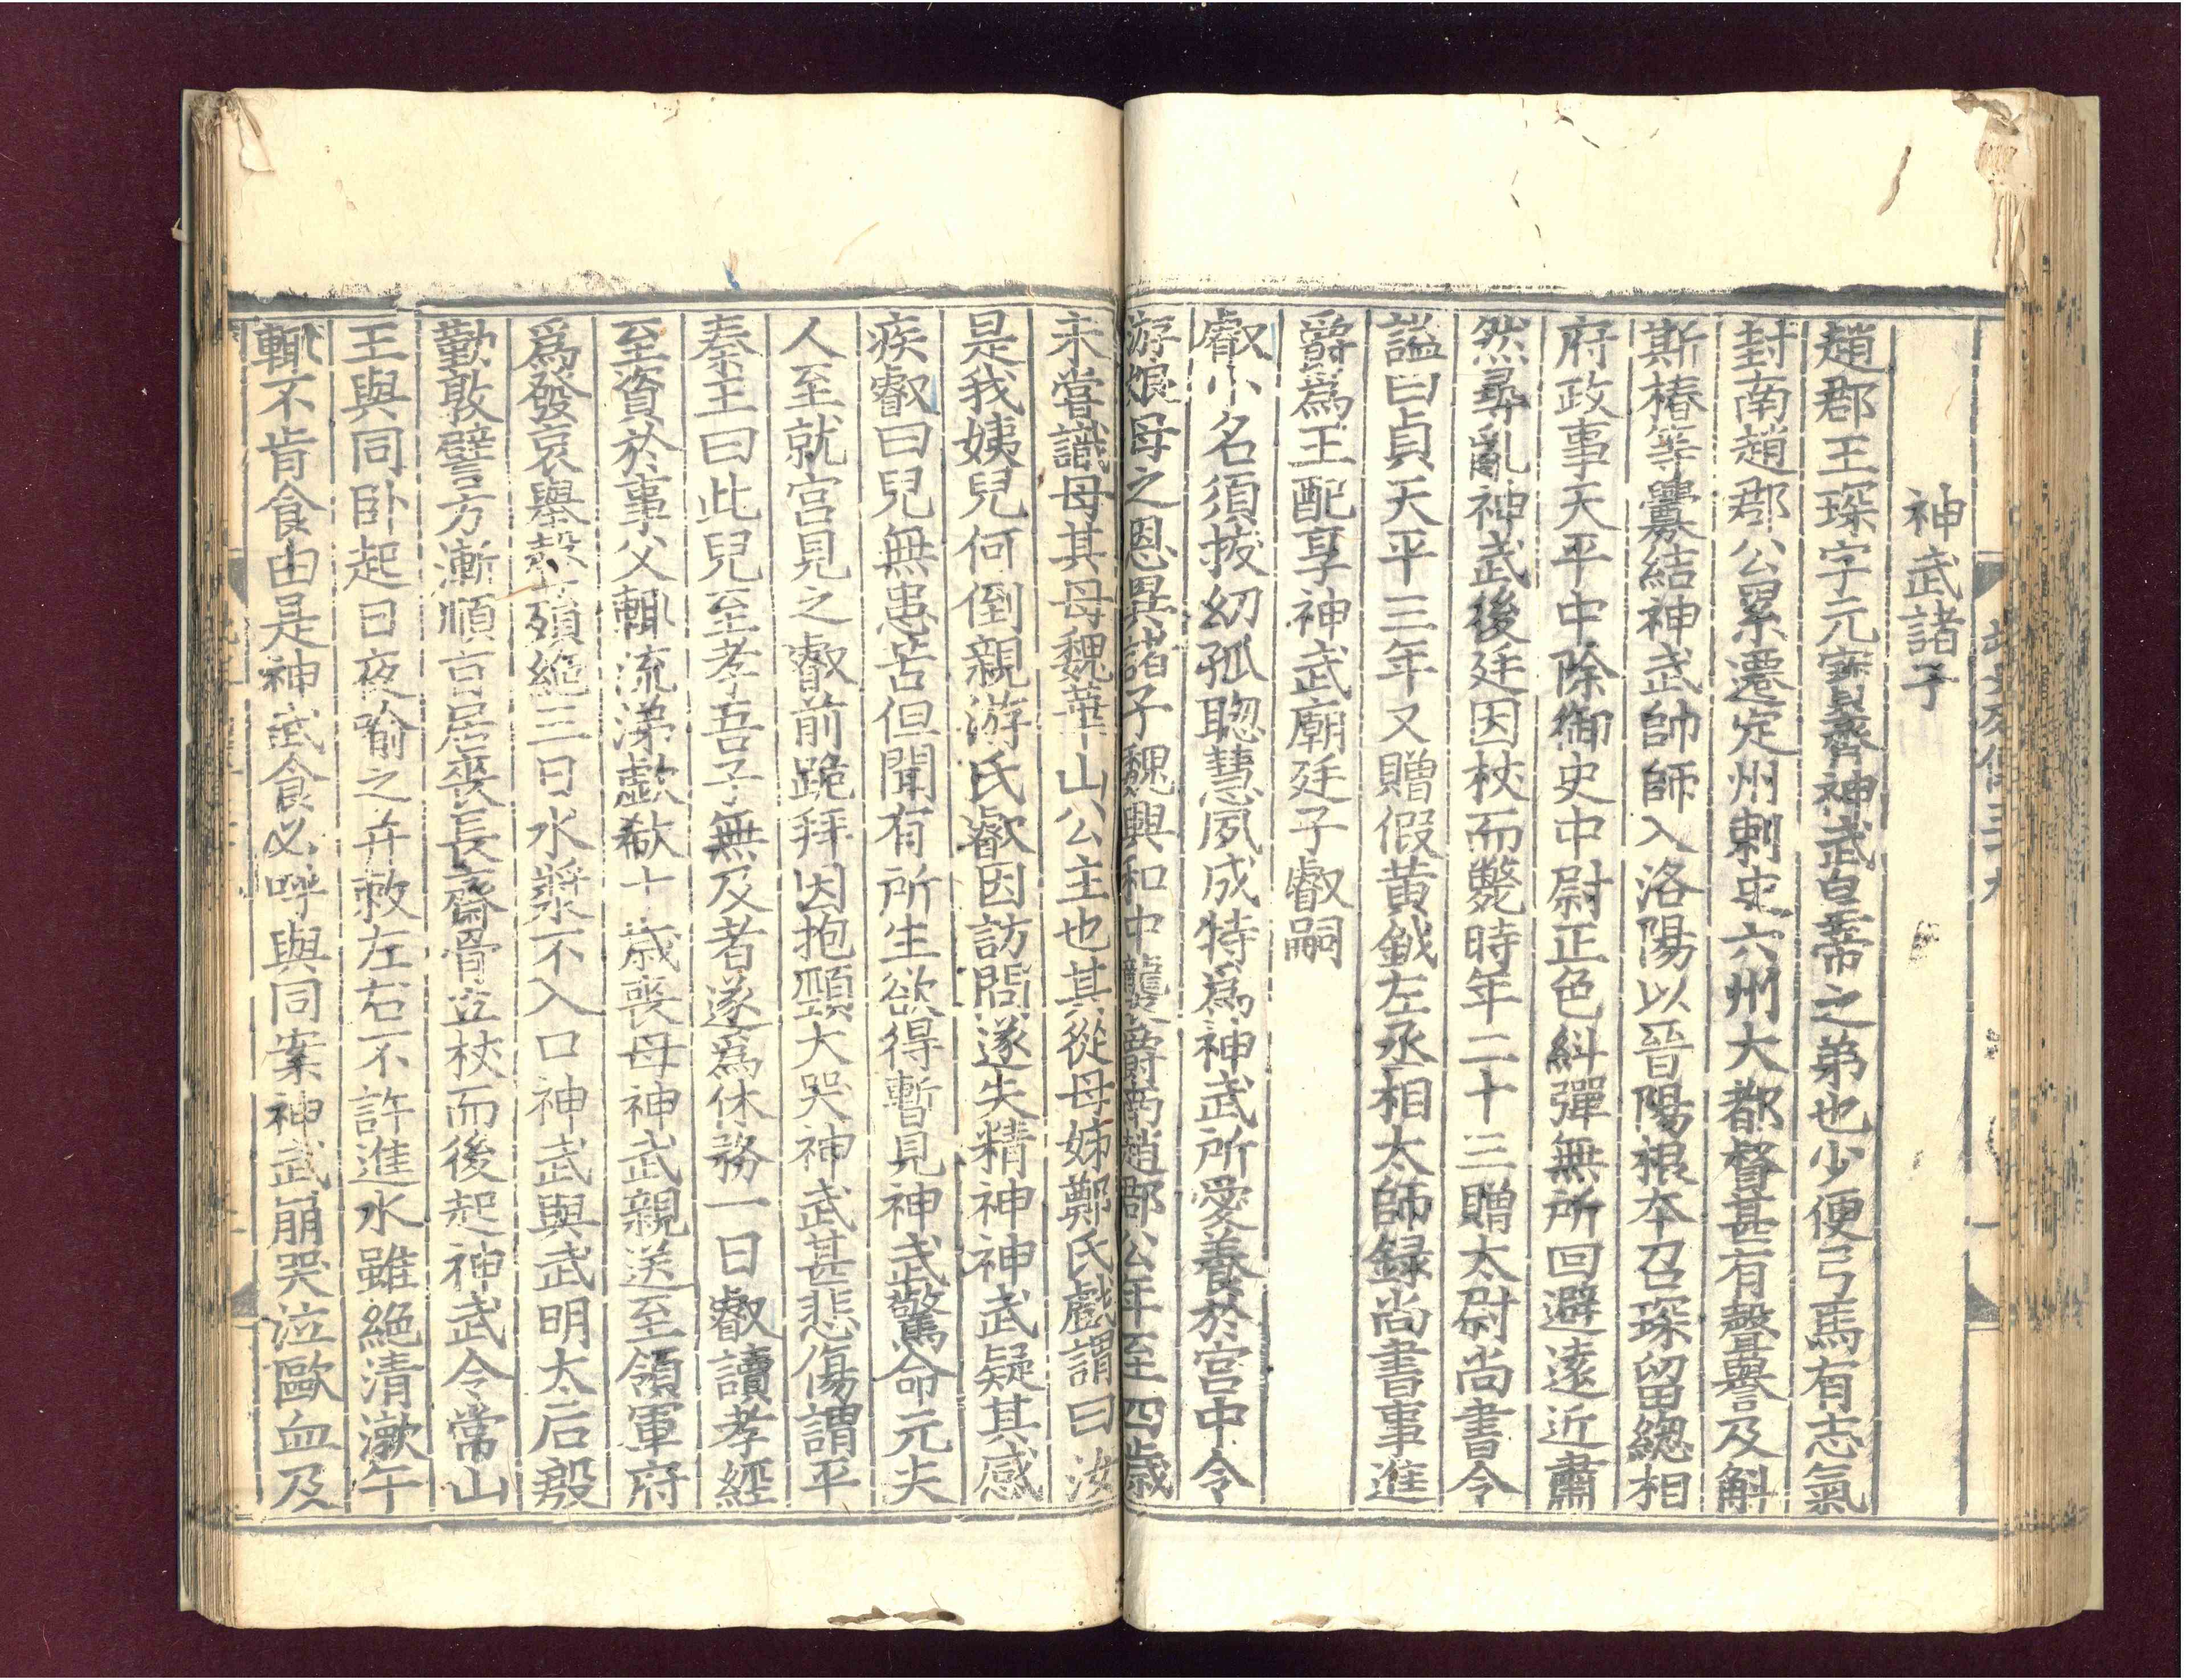 神武諸子
趙郡王琛字元寶齊神武皇帝之弟也少便弓馬有志氣
封南趙郡公累遷定州刺史六州大都督甚有聲譽及斛
斯椿等釁結神武帥師入洛陽以晉陽根本召琛留總相
府政事天平中除御史中尉正色糾彈無所回避遠近肅
然尋亂神武後廷因杖而斃時年二十三贈太尉尚書令
謚曰貞天平三年又贈假黃鉞左丞相太師録尚書事進
爵爲王配享神武廟廷子叡嗣
叡小名須拔幼孤聦慧夙成特爲神武所愛養於宮中令
游孃母之恩異諸子魏興和中襲爵南趙郡公年至四歲
未嘗識母其母魏華山公主也其從母姊鄭氏戲謂曰汝
是我姨兒何倒親游氏叡因訪問遂失精神神武疑其感
疾叡曰兒無患苦但聞有所生欲得暫見神武驚命元夫
人至就宮見之叡前跪拜因抱頸大哭神武甚悲傷謂平
秦王曰此兒至孝吾子無及者遂爲休務一日叡讀孝經
至資於事父輒流涕歔欷十歲喪母神武親送至領軍府
爲發哀舉聲殞絶三日水漿不入口神武與武明太后殷
勤敦譬方漸順旨居喪長齋骨立杖而後起神武令常山
王與同卧起日夜喻之并敕左右不許進水雖絶清漱午
輒不肯食由是神武食必呼與同案神武崩哭泣歐血及